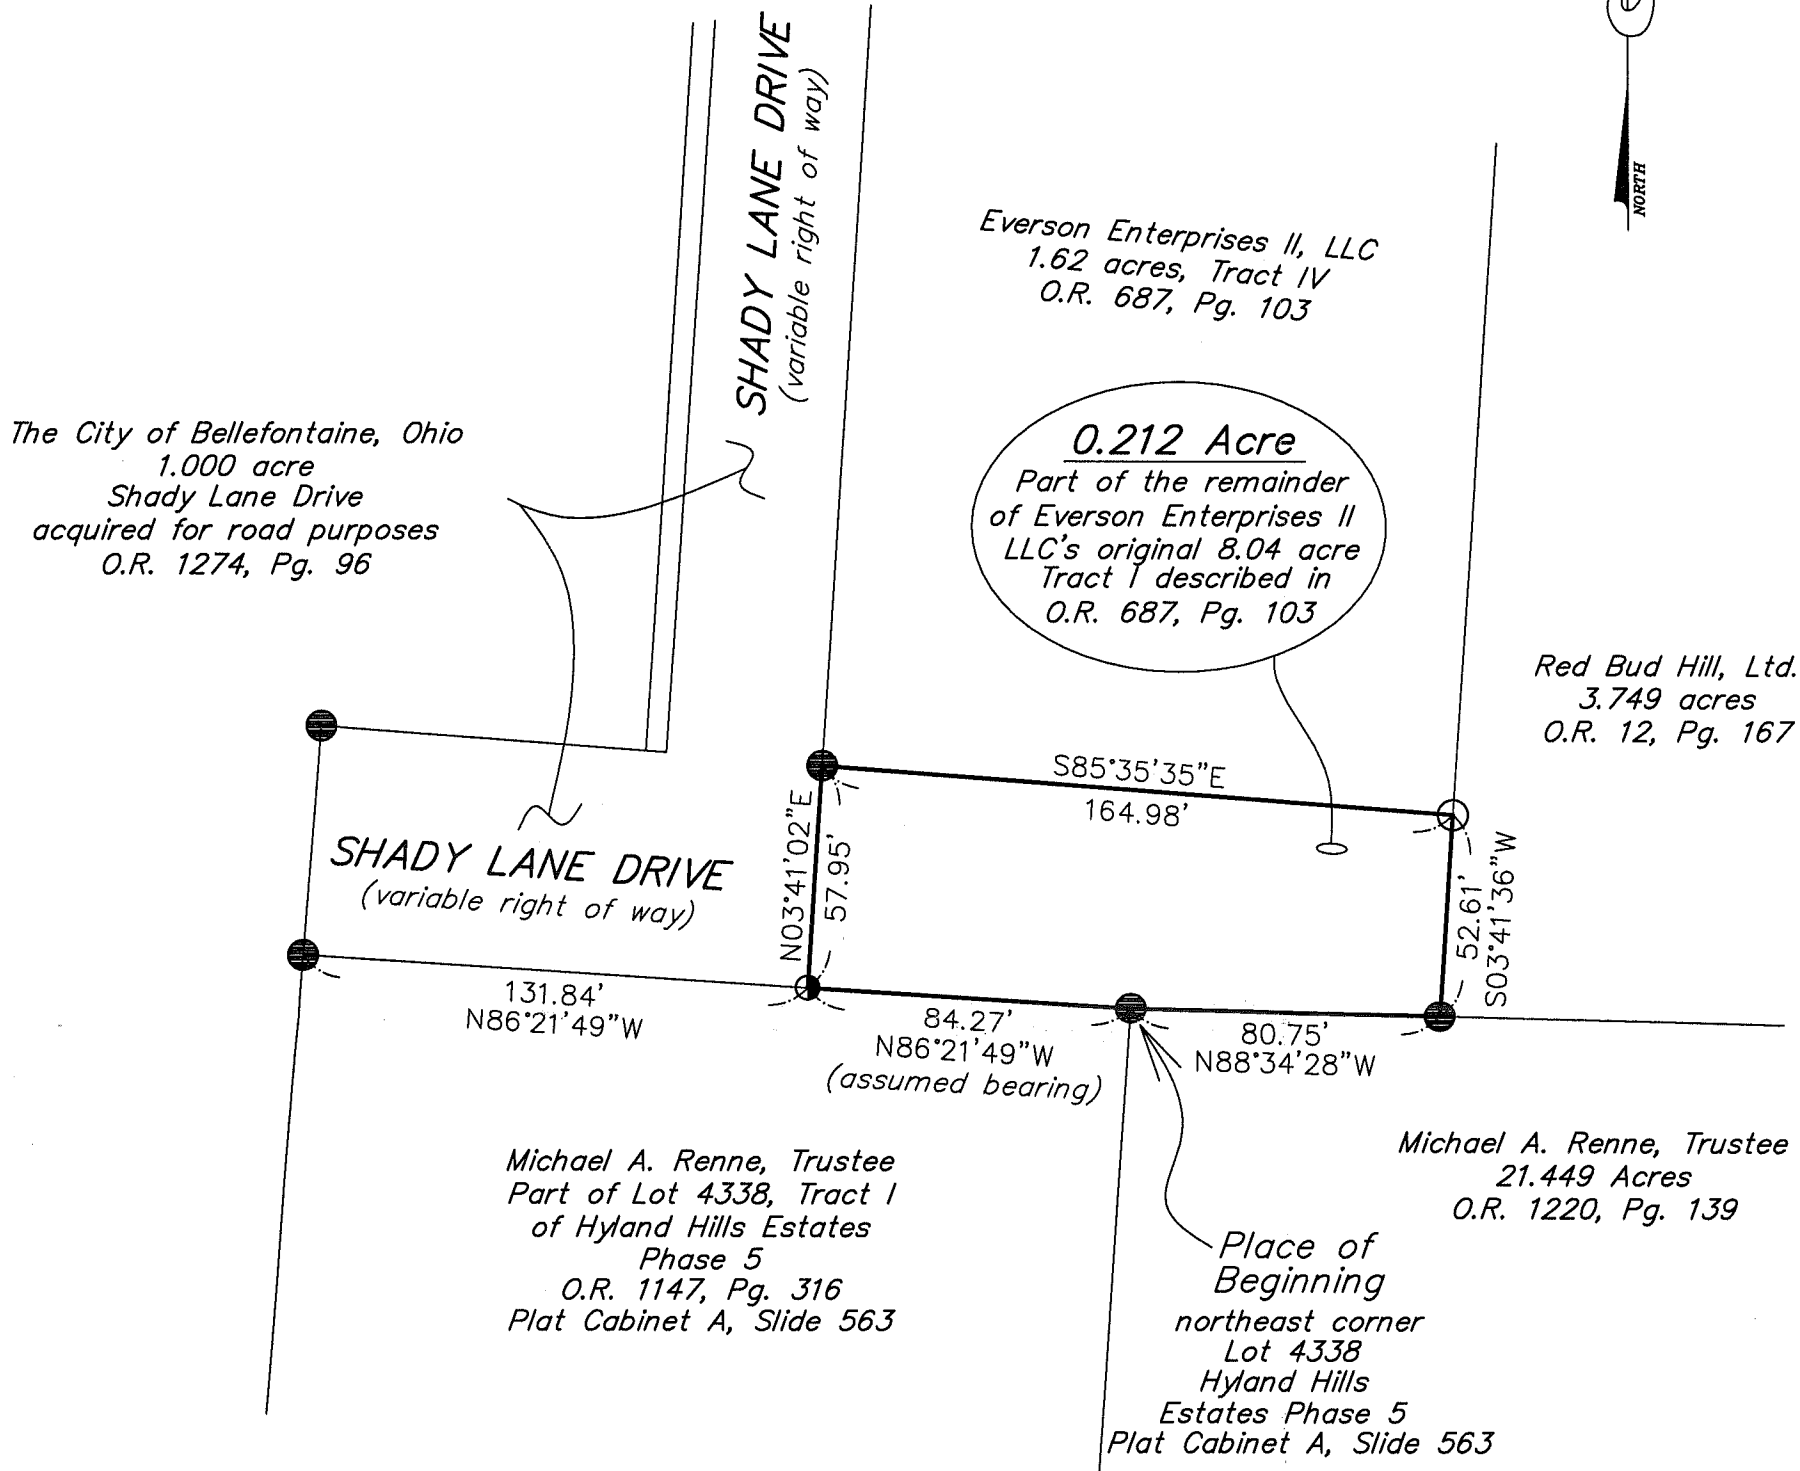 SHADY LANE DRIVE
(variable right of way)
NORTH
Everson Enterprises II, LLC
1.62 acres, Tract IV
O.R. 687, Pg. 103
The City of Bellefontaine, Ohio
1.000 acre
Shady Lane Drive
acquired for road purposes
O.R. 1274, Pg. 96
0.212 Acre
Part of the remainder
of Everson Enterprises II
LLC's original 8.04 acre
Tract I described in
O.R. 687, Pg. 103
Red Bud Hill, Ltd.
3.749 acres
O.R. 12, Pg. 167
S85°35'35"E
164.98'
N03°41'02"E
57.95'
52.61'
S03°41'36"W
SHADY LANE DRIVE
(variable right of way)
131.84'
N86°21'49"W
84.27'
N86°21'49"W
(assumed bearing)
80.75'
N88°34'28"W
Michael A. Renne, Trustee
Part of Lot 4338, Tract I
of Hyland Hills Estates
Phase 5
O.R. 1147, Pg. 316
Plat Cabinet A, Slide 563
Michael A. Renne, Trustee
21.449 Acres
O.R. 1220, Pg. 139
Place of
Beginning
northeast corner
Lot 4338
Hyland Hills
Estates Phase 5
Plat Cabinet A, Slide 563